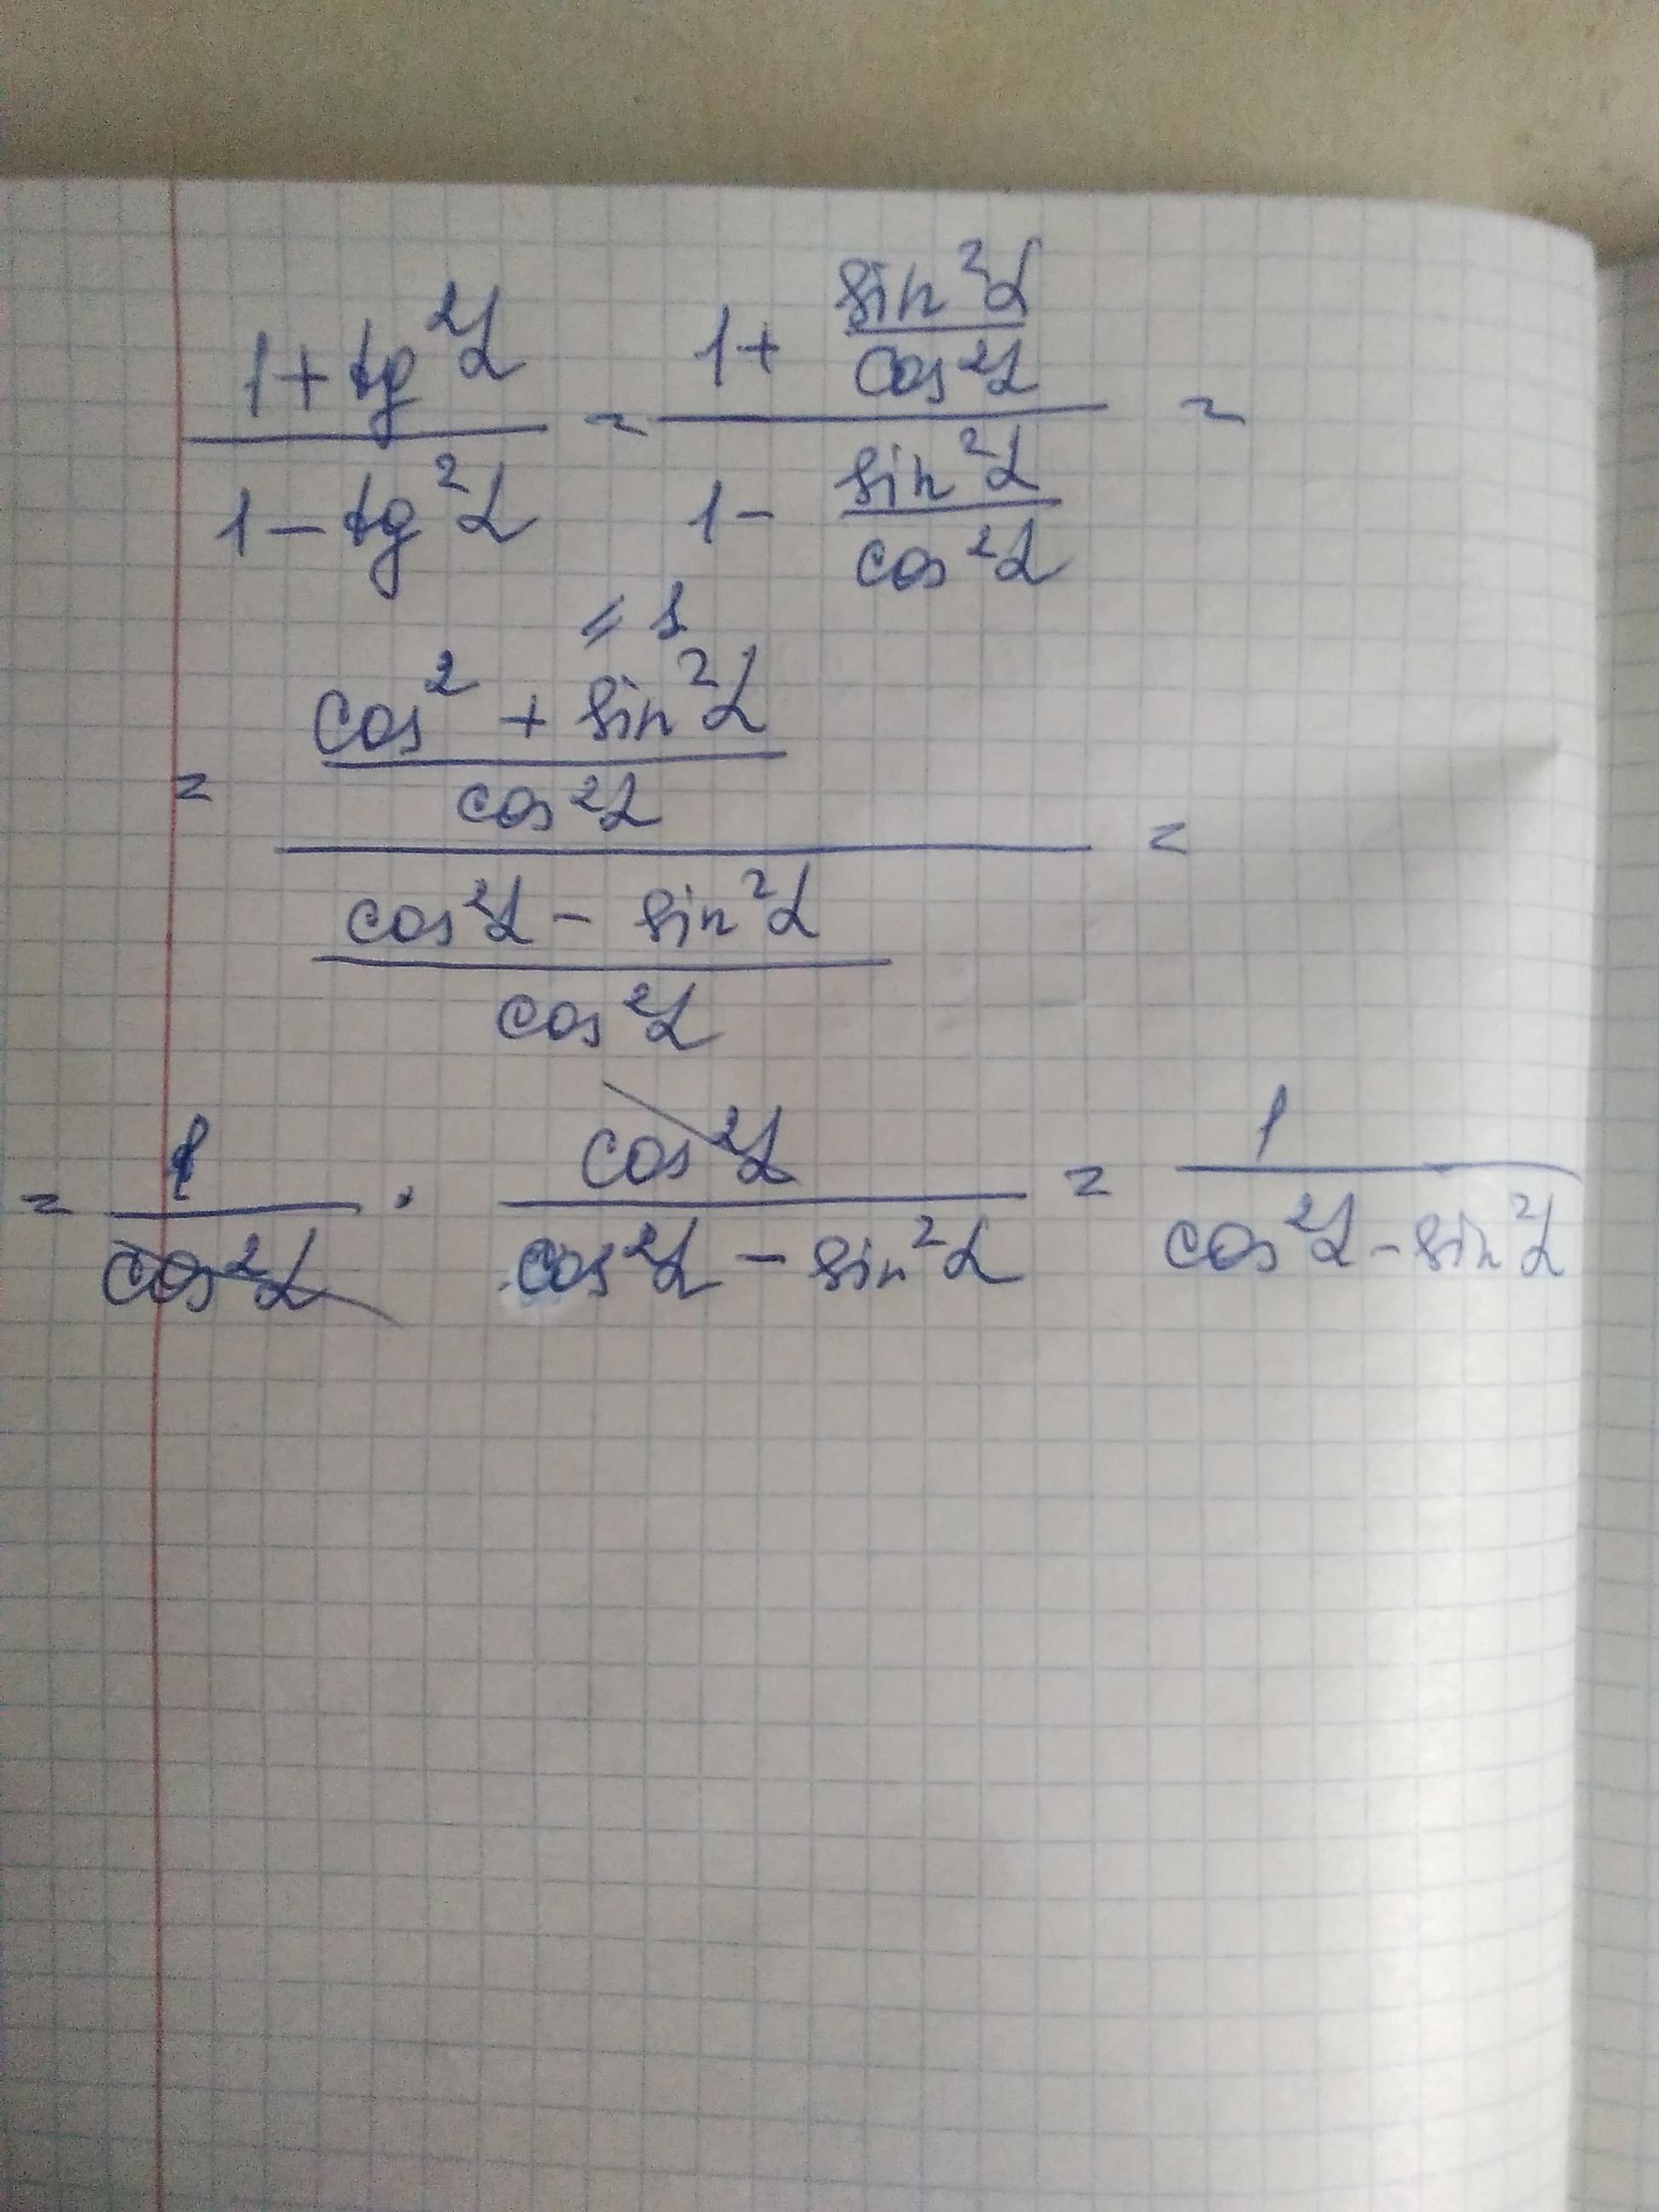 (1 + tg²α)/(1 − tg²α) = (1 + sin²α/cos²α)/(1 − sin²α/cos²α) =
= 1
= ((cos² + sin²α)/cos²α)/((cos²α − sin²α)/cos²α) =
= 1/cos²α · cos²α/(cos²α − sin²α) = 1/(cos²α − sin²α)